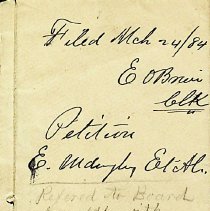 Filed Mch 24/84
E OBrien
Clk
Petition
E. Et Al.
Refered to Board